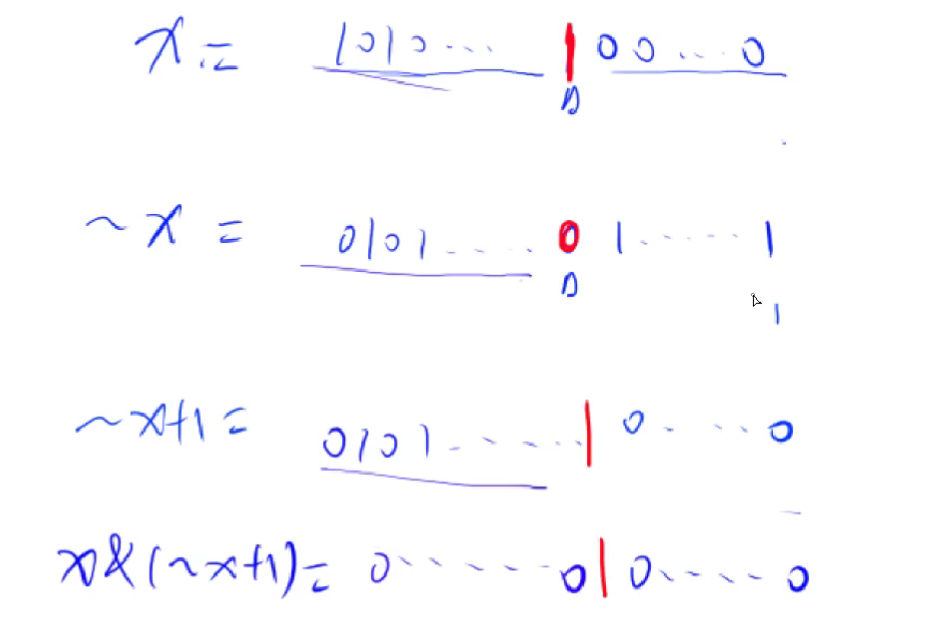 x = 1010... 1 00...0
~x = 0101..... 0 1.......1
1
~x+1 = 0101....... 1 0.....0
x&(~x+1) = 0.......0 1 0......0